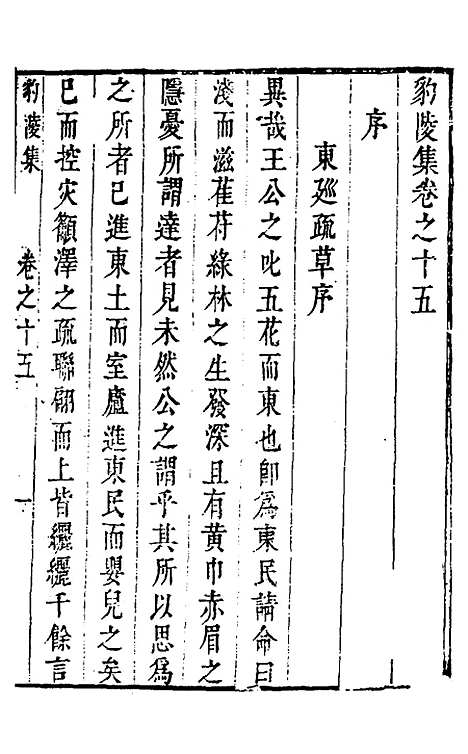 豹陵集卷之十五
序
東廵疏草序
異哉王公之叱五花而東也卽爲東民請命曰
淺而滋萑苻綠林之生發深且有黄巾赤眉之
隱憂所謂達者見未然公之謂乎其所以思爲
之所者已進東土而室廬進東民而嬰兒之矣
已而控灾籲澤之疏聯翩而上皆纚纚千餘言
豹陵集 卷之十五 一